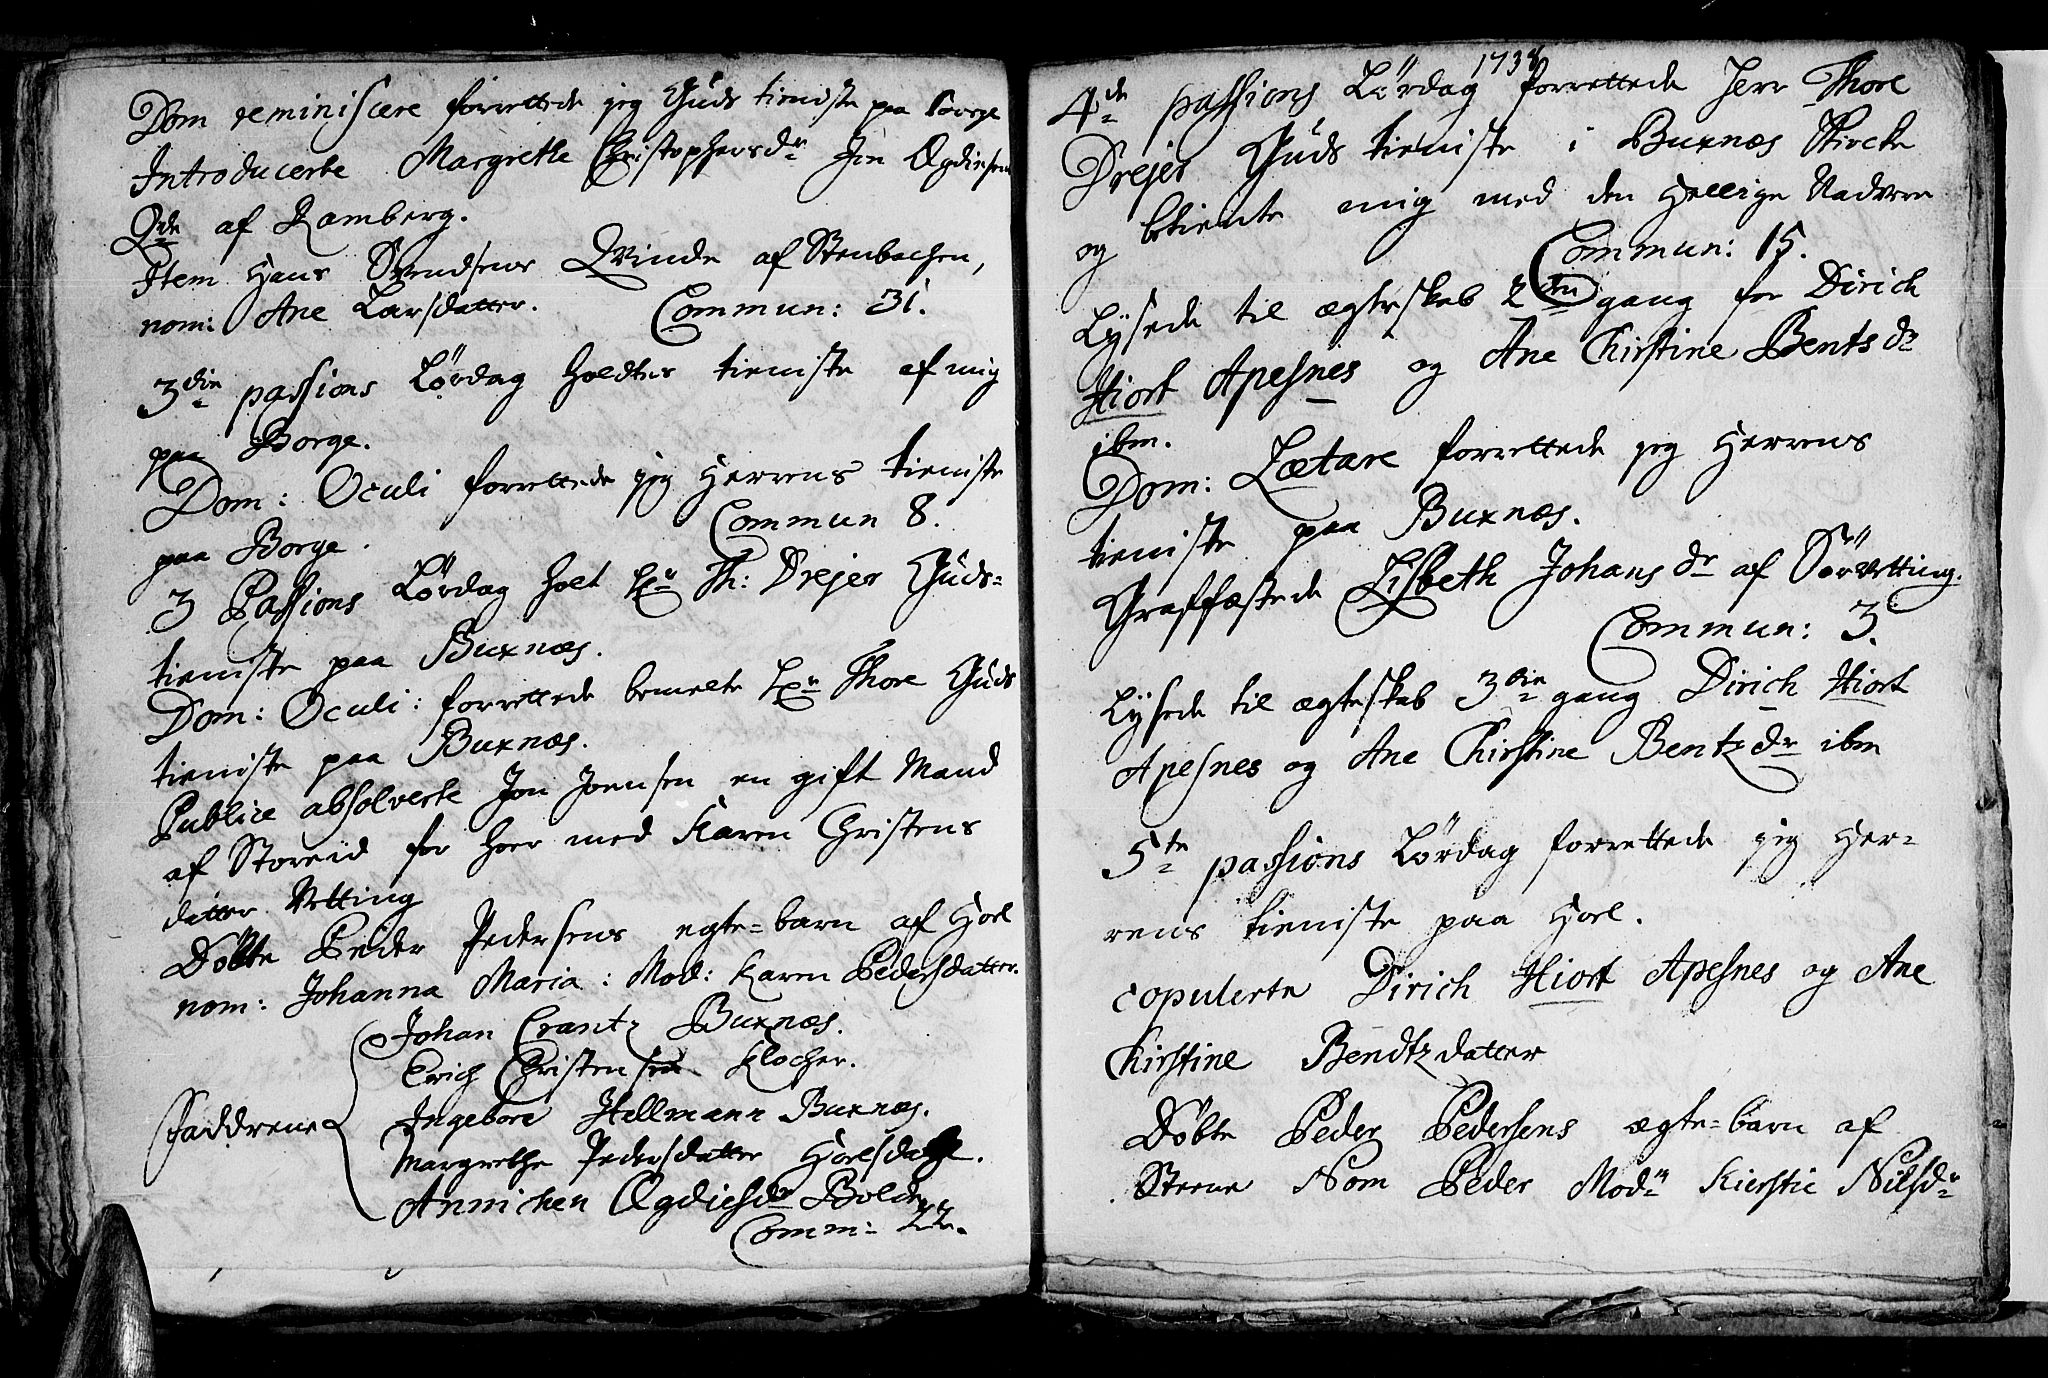 Dom reminiscere forrettede jeg Guds tieniste paa Borge
Introducerte Margrethe Christophersdr Jon Ogdiesens
Qde af Ramberg.
Item Hans Svendsens Qvinde af Stenbachen,
nom: Ane Larsdatter. Commun: 31.
3die passions Lördag holdtes tieniste af mig
paa Borge.
Dom: Oculi forrettede jeg Herrens tieniste
paa Borge. Commun 8.
3 Passions Lördag holt Hr Th: Drejer Guds-
tieniste paa Buxnæs.
Dom: Oculi: forrettede bemelte Hr Thore Guds
tieniste paa Buxnæs.
Publice absolverte Jon Joensen en gift Mand
af Storeid for hoer med Karen Christens
datter Vetting
Döbte Peder Pedersens egte-barn af Hoel
nom: Johanna Maria: Mod: Karen Pedersdatter.
Johan Crantz Buxnæs.
Erich Christensen Klocher.
Faddrene
Ingebore Hellmann Buxnæs.
Margrethe Pedersdatter Hoelsdall.
Annichen Ogdiesdr Bolde
Comm: 22.
1734
4de passions Lördag forrettede Herr Thore
Drejer Guds tieniste i Buxnæs Kircke
og betiente mig med den Hellige Nadvere
Commun: 15.
Lysede til ægteskab 2den gang for Dirich
Hiort Apesnes og Ane Kirstine Bentsdr
ibm.
Dom: Lætare forrettede jeg Herrens
tieniste paa Buxnæs.
Graffæstede Lisbeth Johansdr af Sörvetting.
Commun: 3.
Lysede til ægteskab 3die gang Dirich Hiort
Apesnes og Ane Kirstine Bentzdr ibm
5te passions Lördag forrettede jeg Her-
rens tieniste paa Hoel.
copulerte Dirich Hiort Apesnes og Ane
Kirstine Bendtzdatter
Döbte Peder Pedersens ægte-barn af
Steene Nom Peder Modr Kierstie Nilsdr